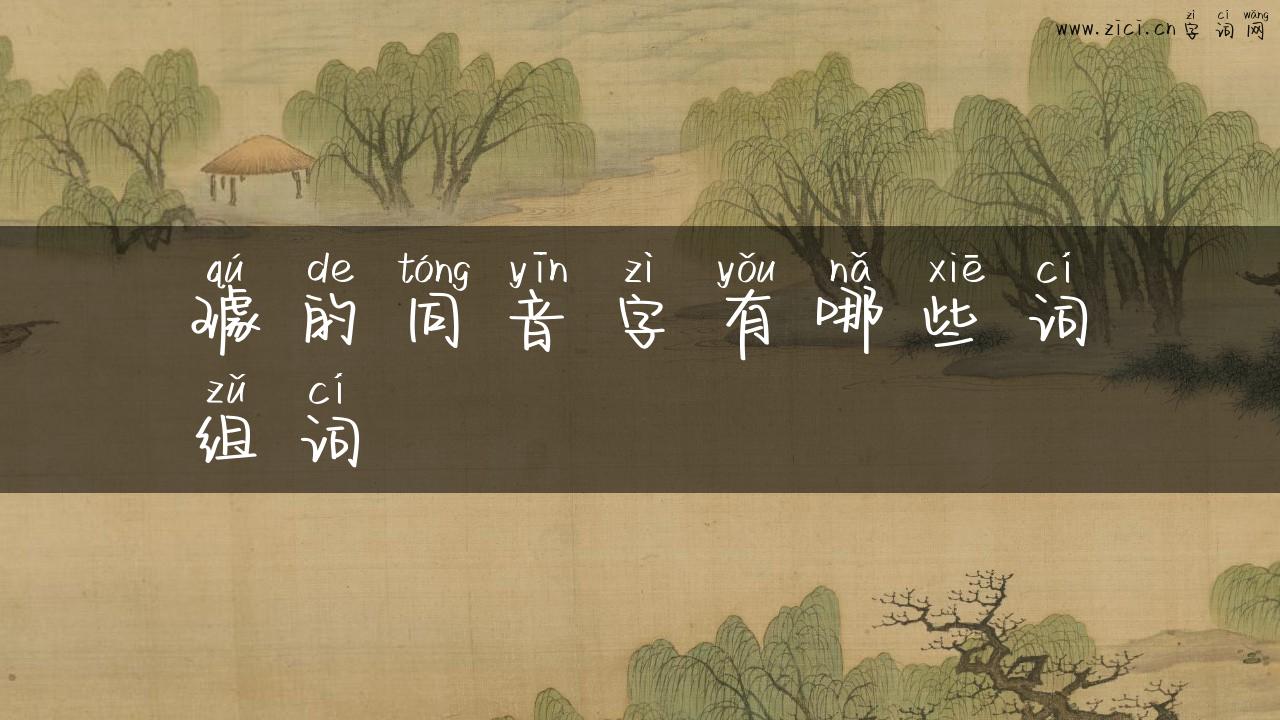 www.zici.cn
zì cí wǎng
字词网
qú de tóng yīn zì yǒu nǎ xiē cí
璩的同音字有哪些词
zǔ cí
组词